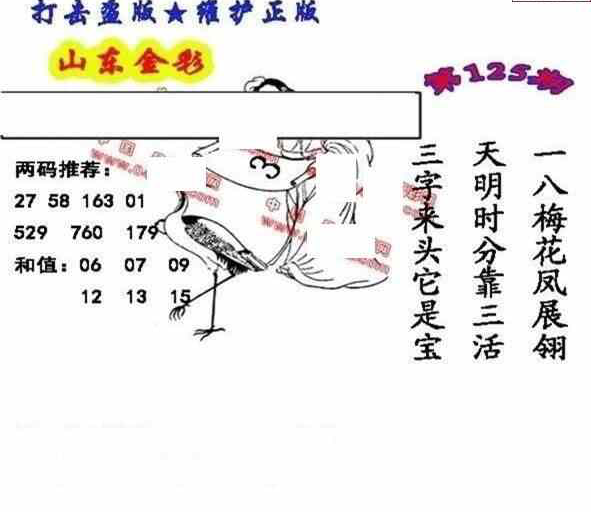 打击盗版★维护正版
山东金彩
第125期
两码推荐:
27 58 163 01
529 760 179
和值: 06 07 09
12 13 15
3
一八梅花凤展翎
天明时分靠三活
三字来头它是宝